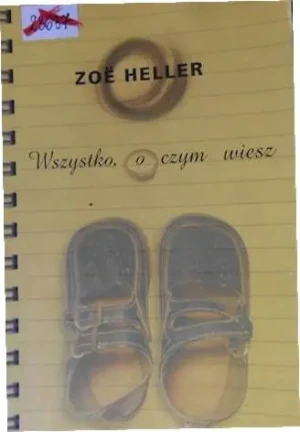 ZOË HELLER
Wszystko, o czym wiesz